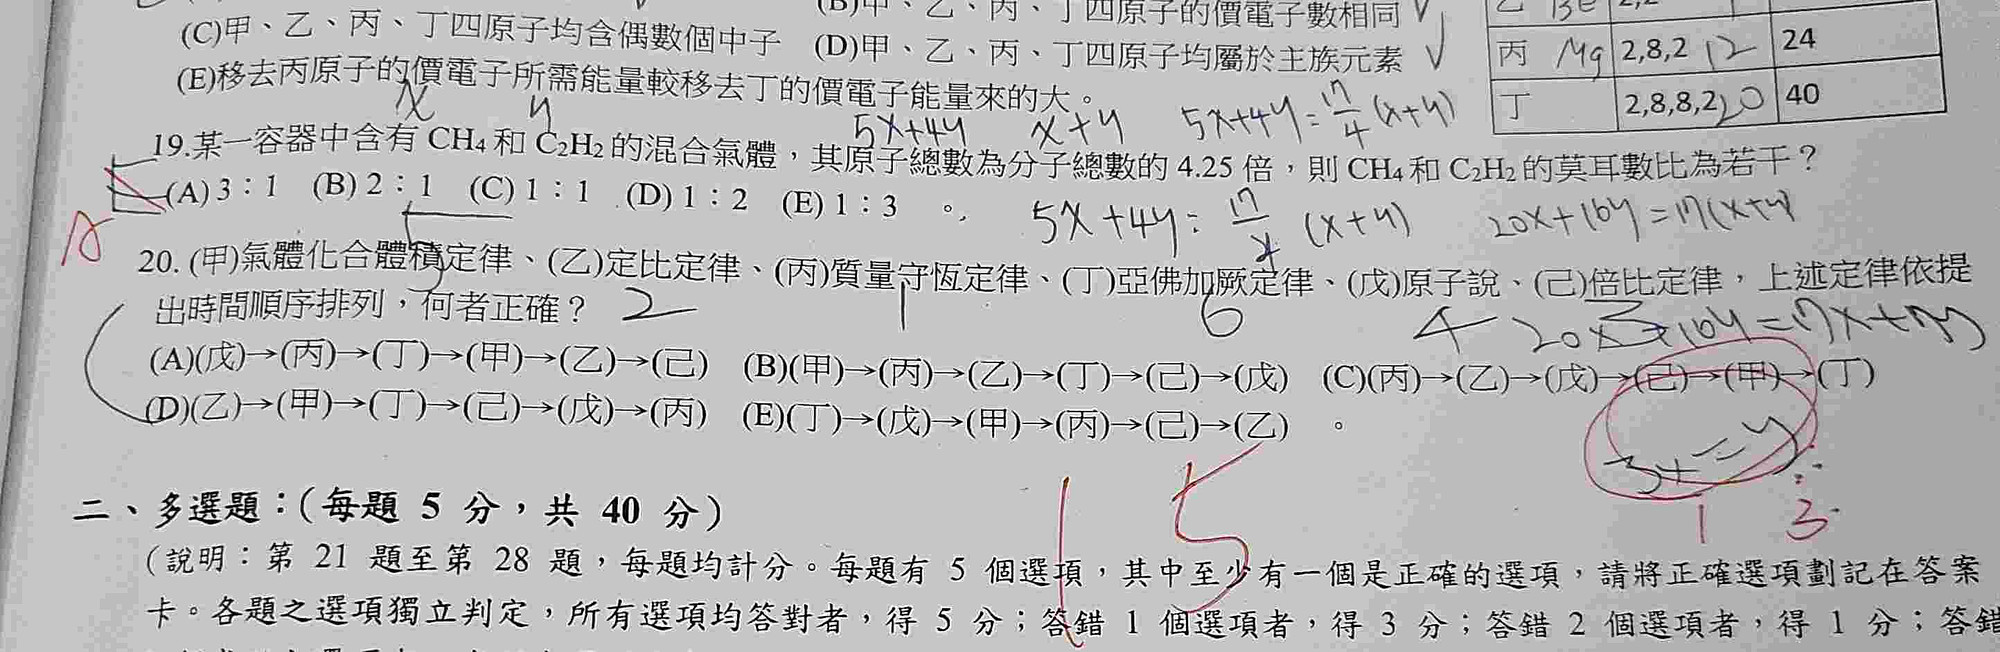 (B)甲、乙、丙、丁四原子的價電子數相同 √
(C)甲、乙、丙、丁四原子均含偶數個中子 (D)甲、乙、丙、丁四原子均屬於主族元素 √
(E)移去丙原子的價電子所需能量較移去丁的價電子能量來的大。
乙 Be 2,2
丙 Mg 2,8,2 12 24
丁 2,8,8,2 20 40
x y 5x+4y x+y 5x+4y=17/4(x+y)
19.某一容器中含有 CH₄ 和 C₂H₂ 的混合氣體，其原子總數為分子總數的 4.25 倍，則 CH₄ 和 C₂H₂ 的莫耳數比為若干？
(A) 3：1 (B) 2：1 (C) 1：1 (D) 1：2 (E) 1：3 。
A
5x+4y=17/4(x+y) 20x+16y=17(x+y)
20. (甲)氣體化合體積定律、(乙)定比定律、(丙)質量守恆定律、(丁)亞佛加厥定律、(戊)原子說、(己)倍比定律，上述定律依提
出時間順序排列，何者正確？
5 2 1 6 4 3
20x+16y=17x+17y
(A)(戊)→(丙)→(丁)→(甲)→(乙)→(己) (B)(甲)→(丙)→(乙)→(丁)→(己)→(戊) (C)(丙)→(乙)→(戊)→(己)→(甲)→(丁)
(D)(乙)→(甲)→(丁)→(己)→(戊)→(丙) (E)(丁)→(戊)→(甲)→(丙)→(己)→(乙) 。
3x=y
1：3
15
二、多選題：（每題 5 分，共 40 分）
（說明：第 21 題至第 28 題，每題均計分。每題有 5 個選項，其中至少有一個是正確的選項，請將正確選項劃記在答案
卡。各題之選項獨立判定，所有選項均答對者，得 5 分；答錯 1 個選項者，得 3 分；答錯 2 個選項者，得 1 分；答錯